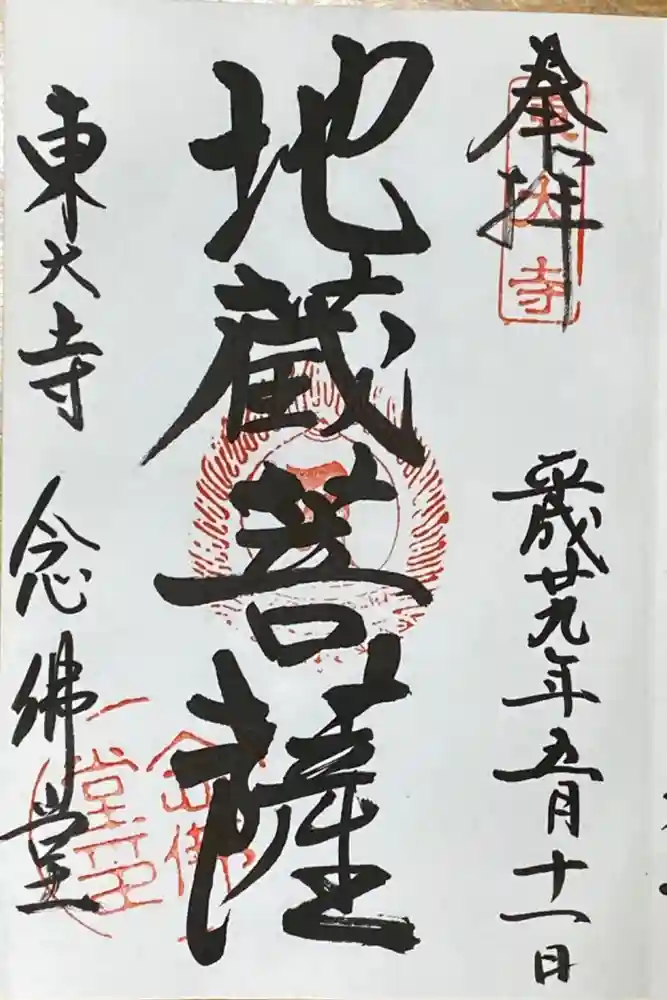 奉拝
東大寺
平成廿九年五月十一日
地蔵菩薩
東大寺 念佛堂